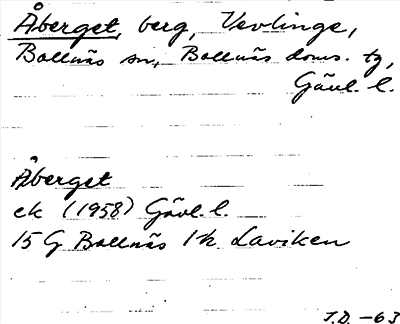 Åberget, berg, Vevlinge,
Bollnäs sn, Bollnäs doms. tg,
Gävl. l.
Åberget
ek (1958) Gävl. l.
15 G Bollnäs 1 h Laviken
J.D. -63